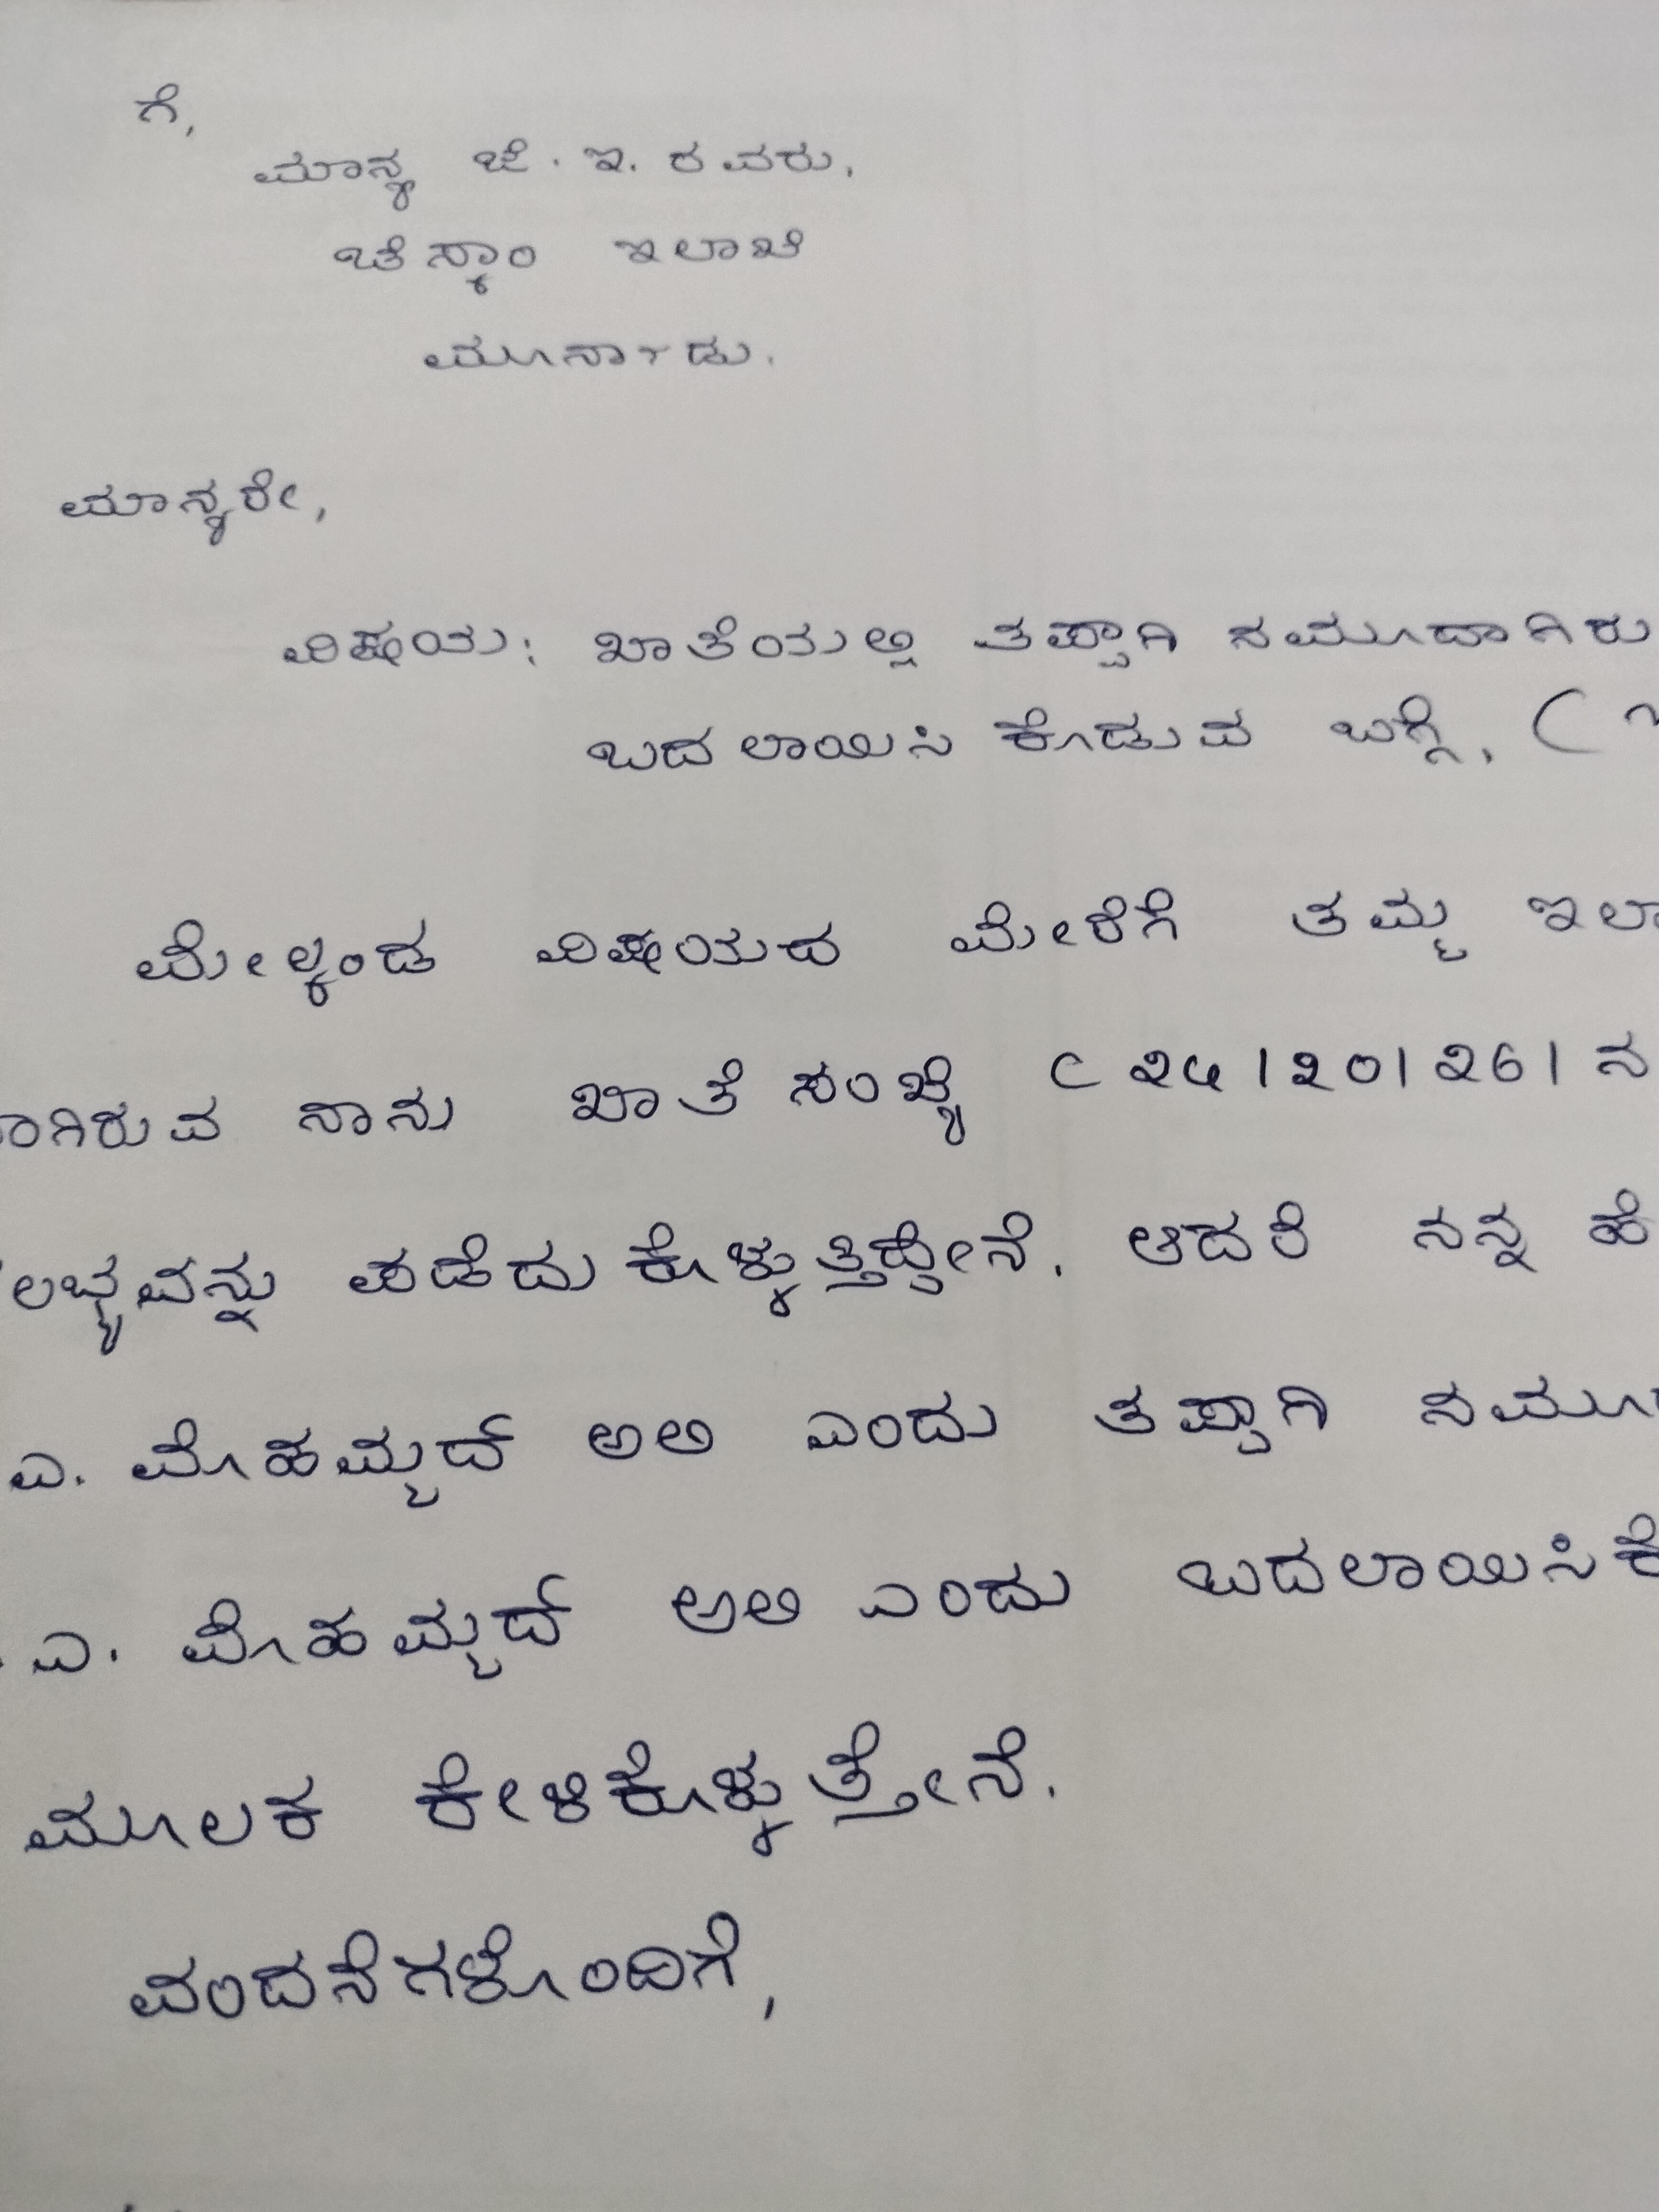 ಗೆ,
ಮಾನ್ಯ ಜೆ. ಇ. ರವರು,
ಚೆಸ್ಕಾಂ ಇಲಾಖೆ
ಮೂರ್ನಾಡು.
ಮಾನ್ಯರೇ,
ವಿಷಯ: ಖಾತೆಯಲ್ಲಿ ತಪ್ಪಾಗಿ ನಮೂದಾಗಿರು
ಬದಲಾಯಿಸಿ ಕೊಡುವ ಬಗ್ಗೆ. (
ಮೇಲ್ಕಂಡ ವಿಷಯದ ಮೇರೆಗೆ ತಮ್ಮ ಇಲಾ
ಾಗಿರುವ ನಾನು ಖಾತೆ ಸಂಖ್ಯೆ ನ
ಲಭ್ಯವನ್ನು ಪಡೆದುಕೊಳ್ಳುತ್ತಿದ್ದೇನೆ. ಆದರೆ ನನ್ನ ಹೆ
ಎ. ಮೊಹಮ್ಮದ್ ಅಲಿ ಎಂದು ತಪ್ಪಾಗಿ ನಮೂ
. ಎ. ಮೊಹಮ್ಮದ್ ಅಲಿ ಎಂದು ಬದಲಾಯಿಸಿಕೆ
ಮೂಲಕ ಕೇಳಿಕೊಳ್ಳುತ್ತೇನೆ.
ವಂದನೆಗಳೊಂದಿಗೆ,